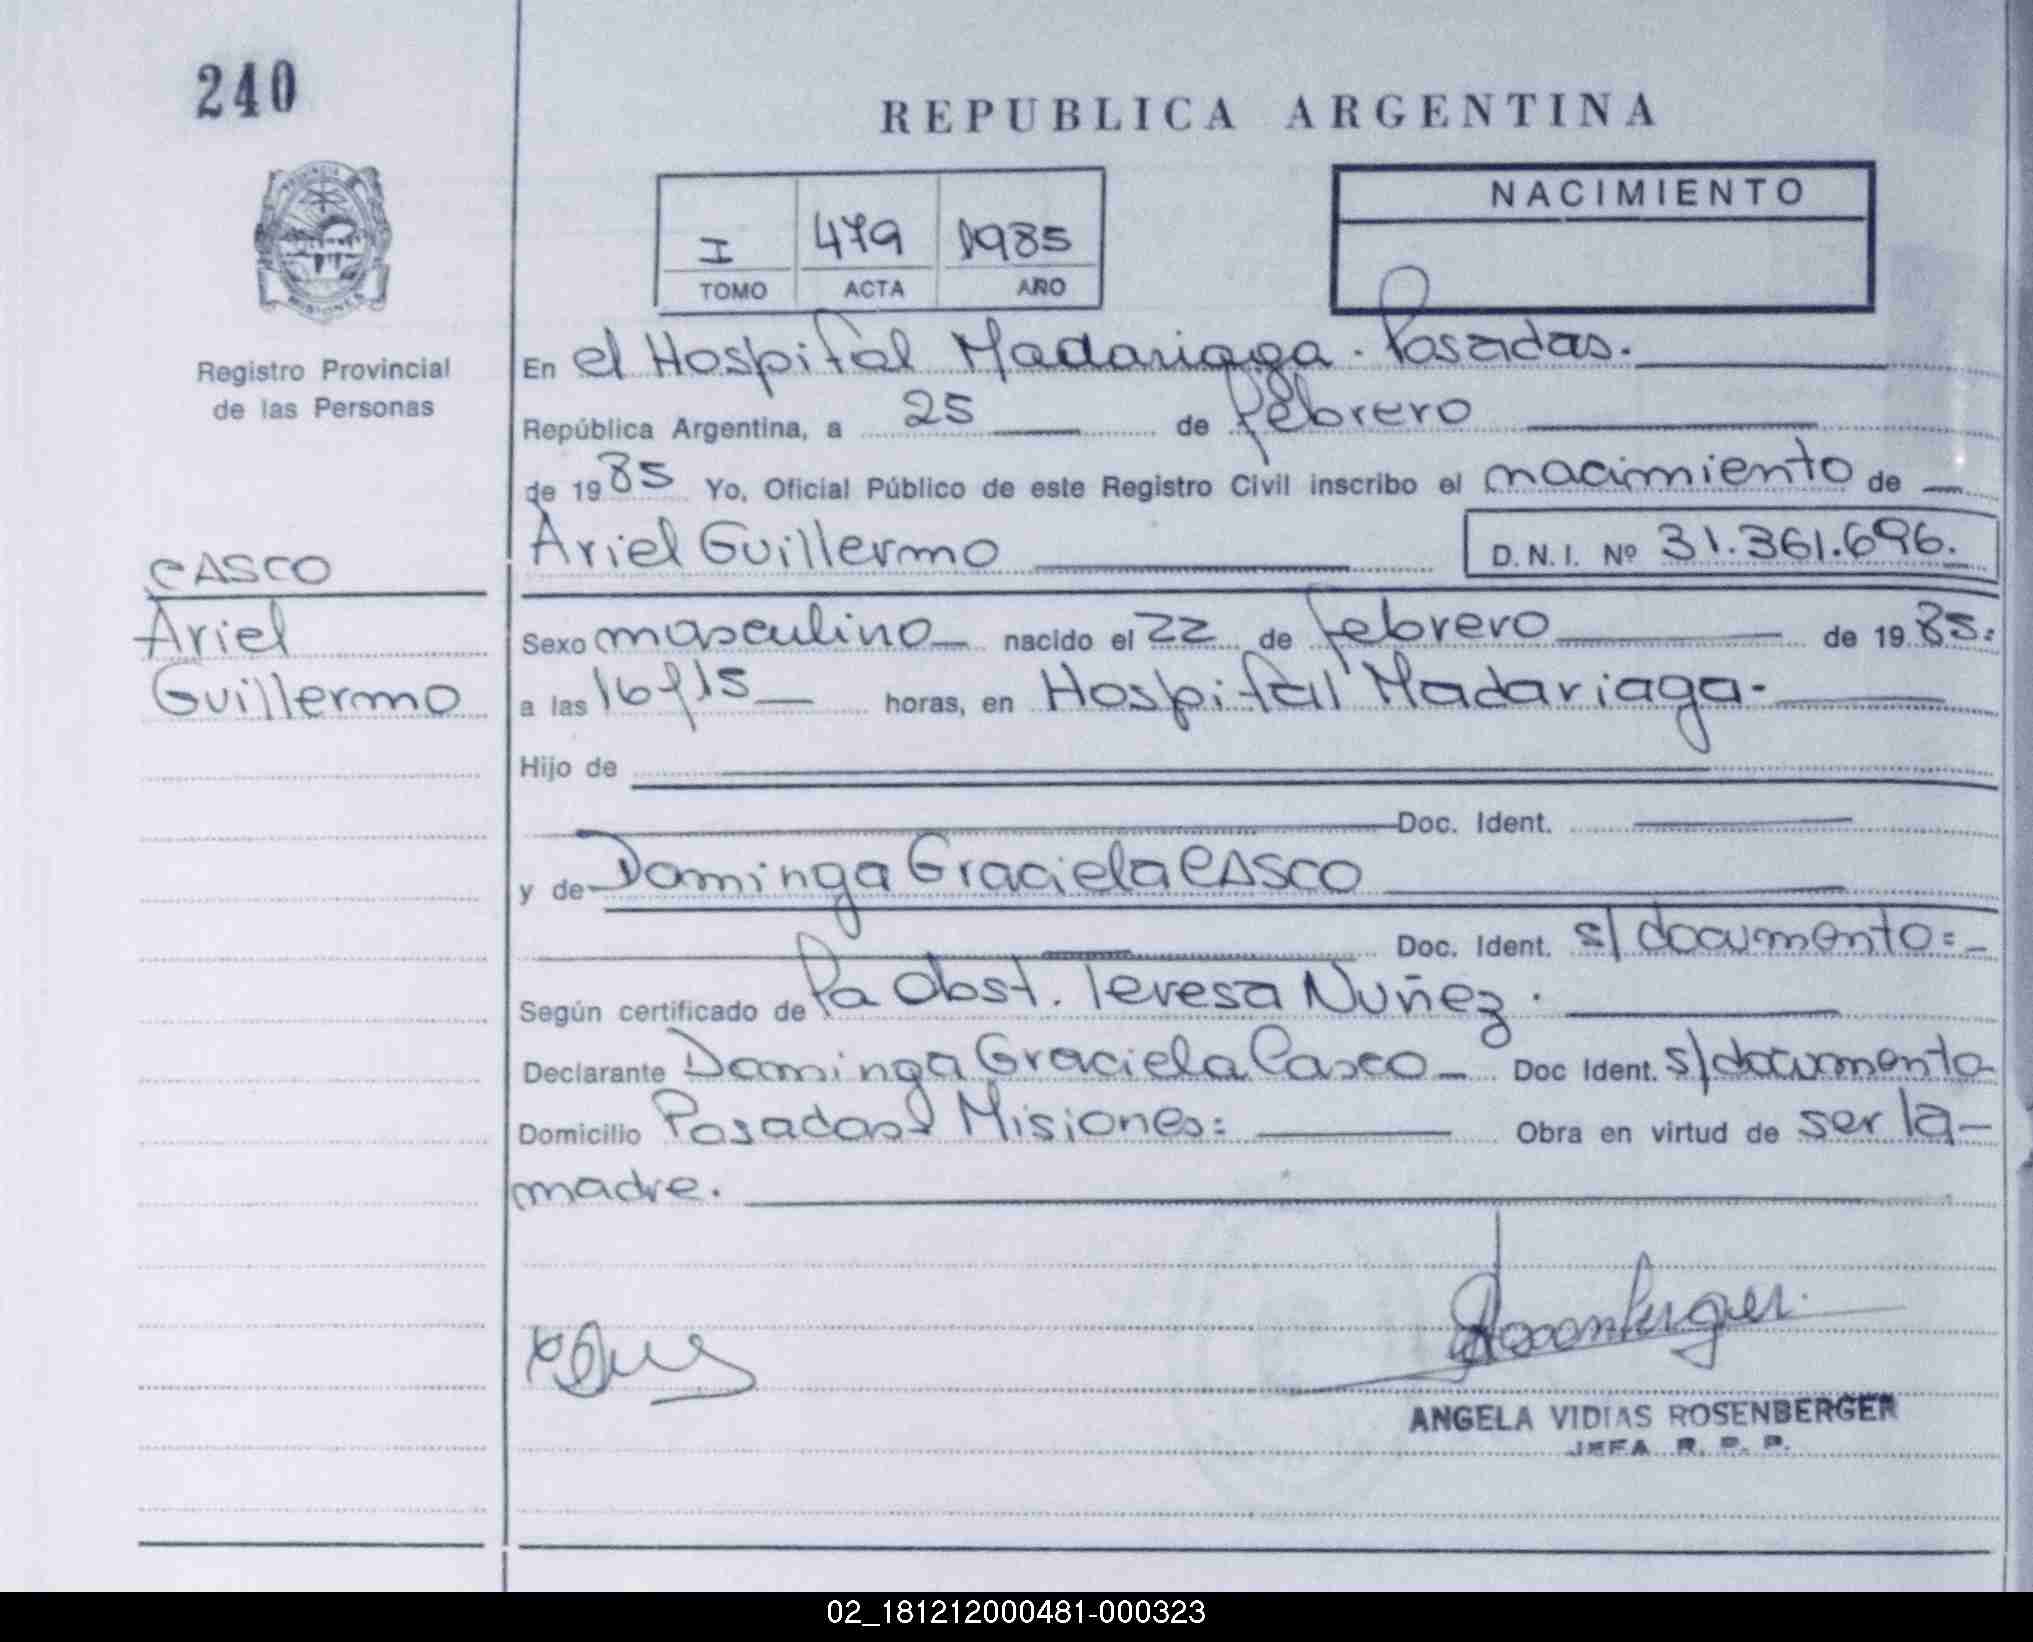 240
REPUBLICA ARGENTINA
NACIMIENTO
I 479 1985
TOMO ACTA AÑO
PROVINCIA
MISIONES
Registro Provincial
de las Personas
En el Hospital Madariaga. Posadas.
República Argentina, a 25 de febrero
de 1985 Yo, Oficial Público de este Registro Civil inscribo el nacimiento de
Ariel Guillermo D.N.I. Nº 31.361.696.
CASCO
Ariel
Guillermo
Sexo masculino nacido el 22 de febrero de 1985:
a las 16y15 horas, en Hospital Madariaga-
Hijo de
Doc. Ident.
y de Dominga Graciela CASCO
Doc. Ident. s/documento=
Según certificado de Pa Obst. Teresa Nuñez.
Declarante Dominga Graciela Casco Doc Ident. s/documento
Domicilio Posadas Misiones: Obra en virtud de ser la
madre.
Rosenberger
ANGELA VIDIAS ROSENBERGER
JEFA R. P. P.
02_181212000481-000323